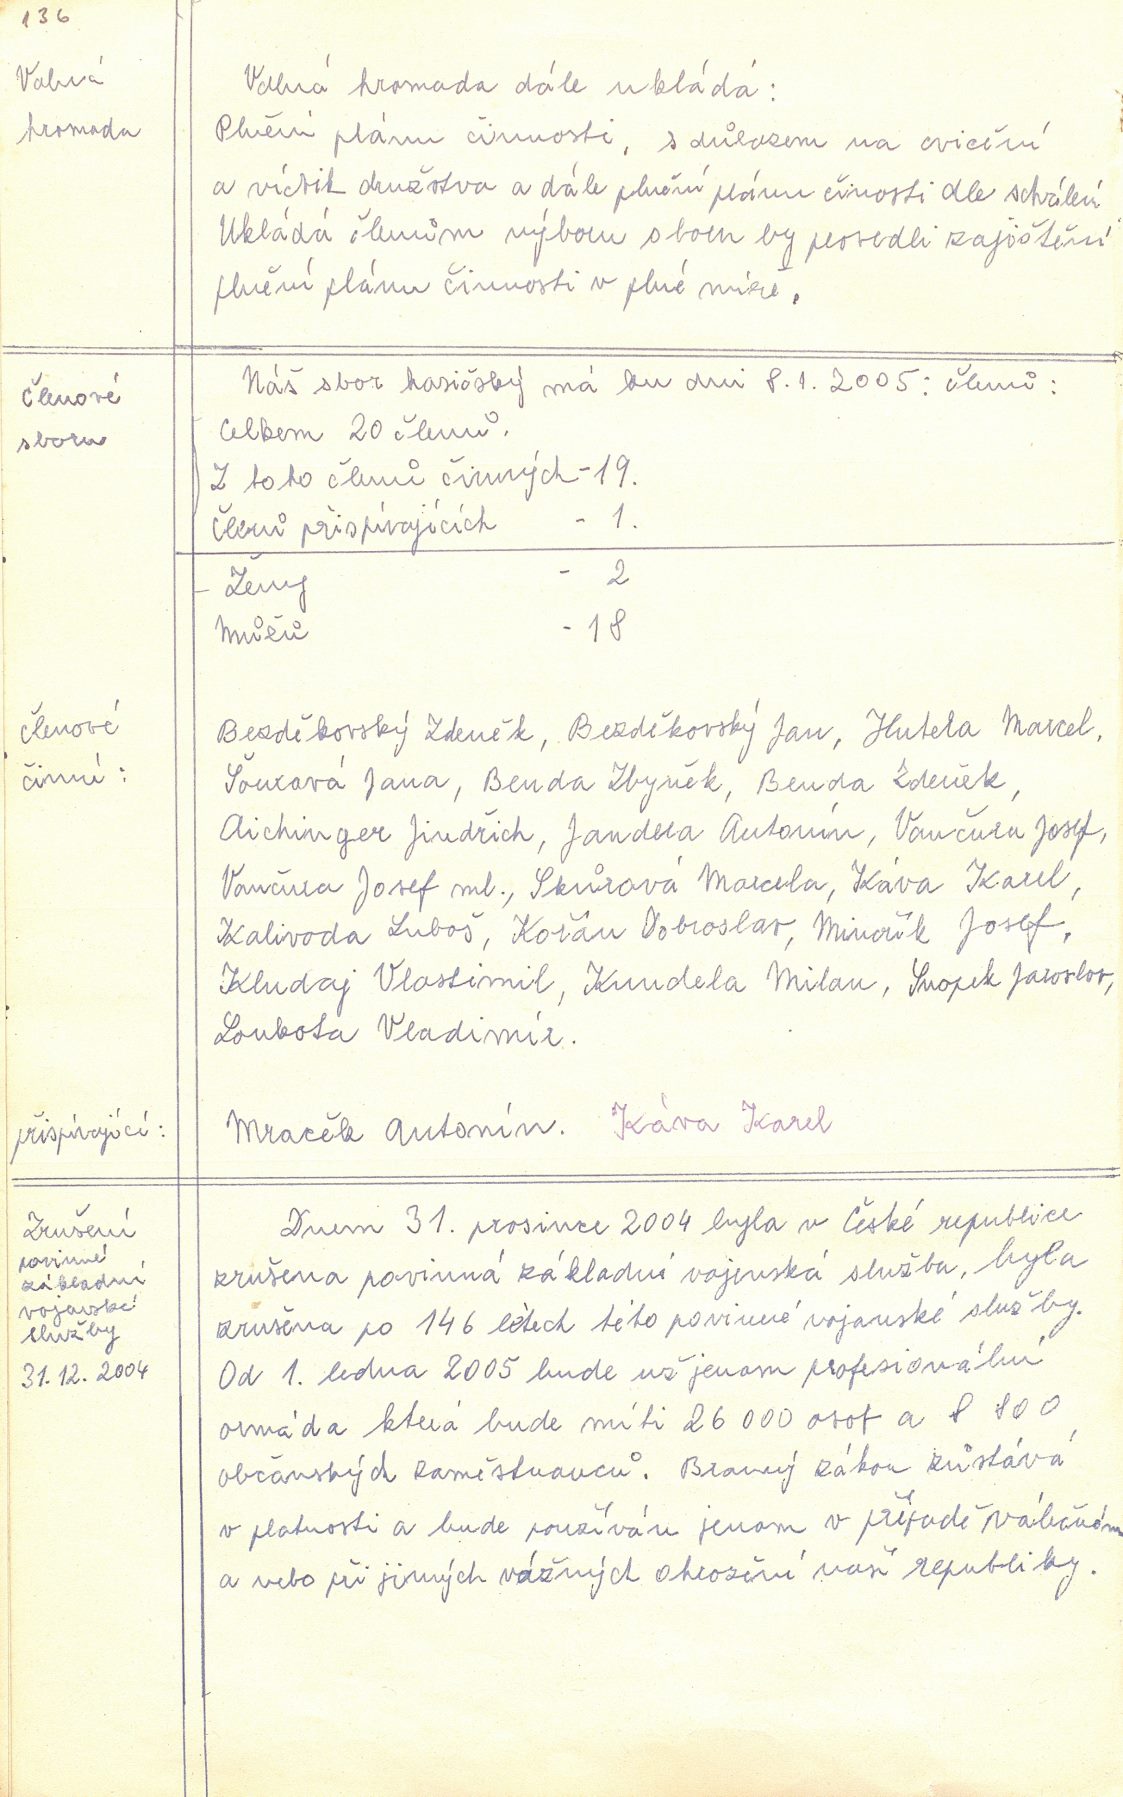 136
Valná
hromada
Valná hromada dále ukládá:
Plnění plánu činnosti, s důlazem na cvičění
a vícbik družstva a dále plnění plánu činosti dle schválení
Ukládá členům výboru sboru by provedli zajištění
plnění plánu činnosti v plné míře.
Členové
sboru
Náš sbor hasičský má ku dni 8.1.2005: členů:
Celkem 20 členů.
Z toho členů činných - 19.
Členů přispívajících - 1.
- Ženy - 2
Mužů - 18
členové
činní:
Bezděkovský Zdeněk, Bezděkovský Jan, Hutera Marcel,
Šourová Jana, Benda Zbyněk, Benda Zdeněk,
Aichinger Jindřich, Jandera Antonín, Vančura Josef,
Vančura Josef ml., Skůrová Marcela, Káva Karel,
Kalivoda Luboš, Kořán Dobroslav, Minařík Josef,
Kludaj Vlastimil, Kundela Milan, Snopek Jaroslav,
Loukota Vladimír.
přispívající:
Mracěk Antonín. Káva Karel
Zrušení
povinné
základní
vojanské
služby
31.12.2004
Dnem 31. prosince 2004 byla v České republice
zrušena povinná základní vojenská služba, byla
zrušena po 146 létech této povinné vojanské služby.
Od 1. ledna 2005 bude už jenom profesionální
armáda která bude míti 26 000 osob a 8 800
občanských zaměstnanců. Branný zákon zůstává
v platnosti a bude používán jenom v případě válečném
a nebo při jiných vážných ohrožění naší republiky.